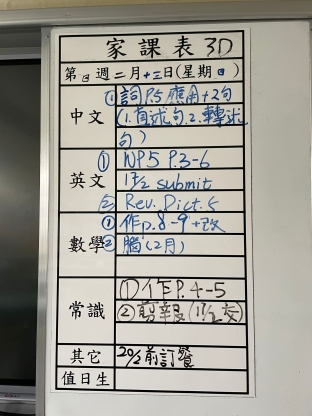 家課表 3D
第 週二月十三日(星期四)
中文 ①詞P.5應用+2句
(1.直述句.2.轉述
句)
英文 ① WP5 P.3-6
17/2 submit
② Rev. Dict. 5
數學 ①作p.8-9+改
②腦(2月)
常識 ①作P.4-5
②剪報(17/2交)
其它 20/2前訂餐
值日生